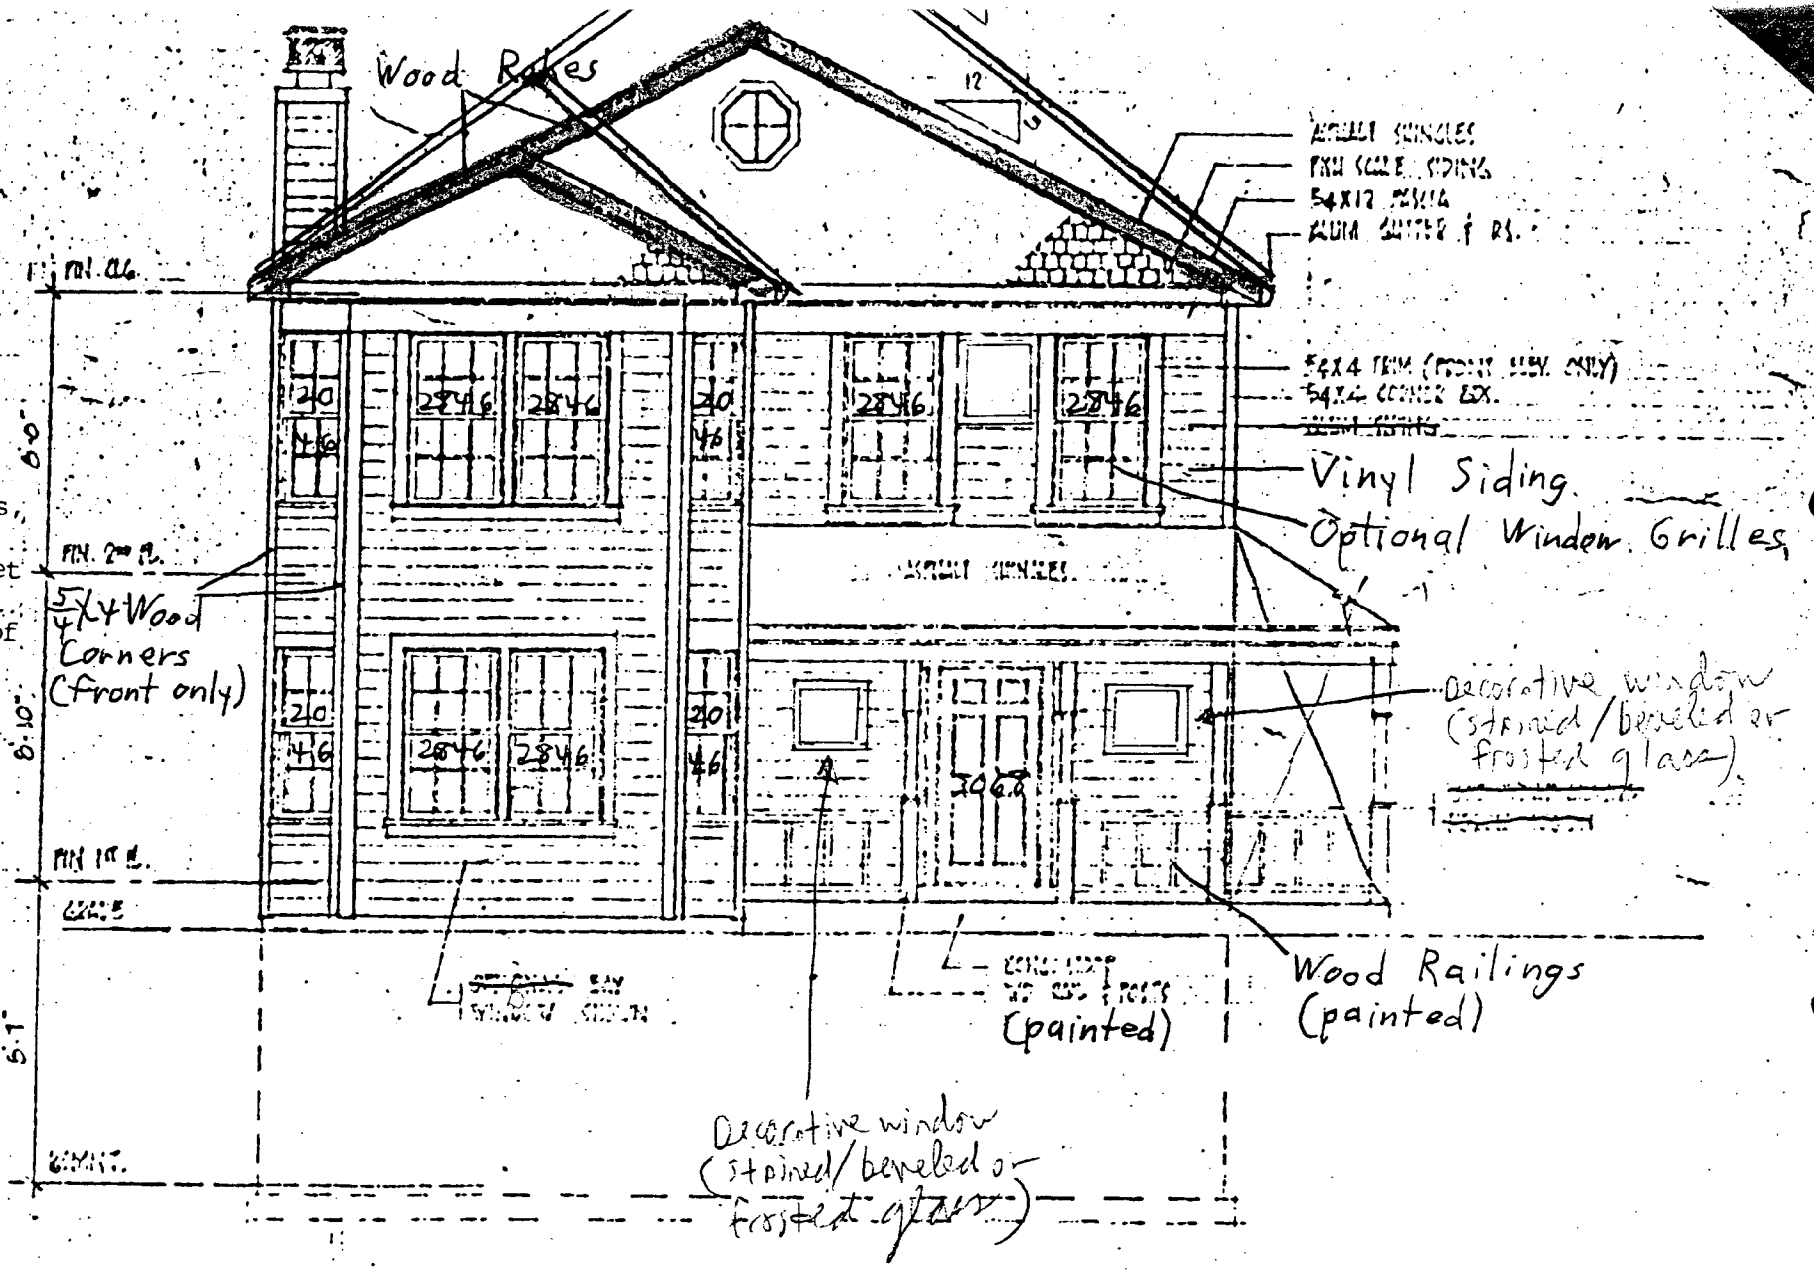 Wood Rakes
12
ASPHALT SHINGLES
FISH SCALE SIDING
54X12 FASCIA
ALUM. GUTTER & DS.
FIN. CLG.
20
2846
2846
20
2846
2846
46
46
54X4 TRIM (FRONT ELEV. ONLY)
54X4 CORNER BDX.
ALUM. SIDING
Vinyl Siding
Optional Window Grilles
8'-0"
s,
FIN. 2ND FL.
et
of
ASPHALT SHINGLES
5/4 X 4 Wood
Corners
(front only)
Decorative window
(stained/beveled or
frosted glass)
20
2846
2846
20
46
46
3068
8'-10"
FIN 1ST FL.
GRADE
BAY
WINDOW SHOWN
POSTS
(painted)
Wood Railings
(painted)
Decorative window
(stained/beveled or
frosted glass)
BSMNT.